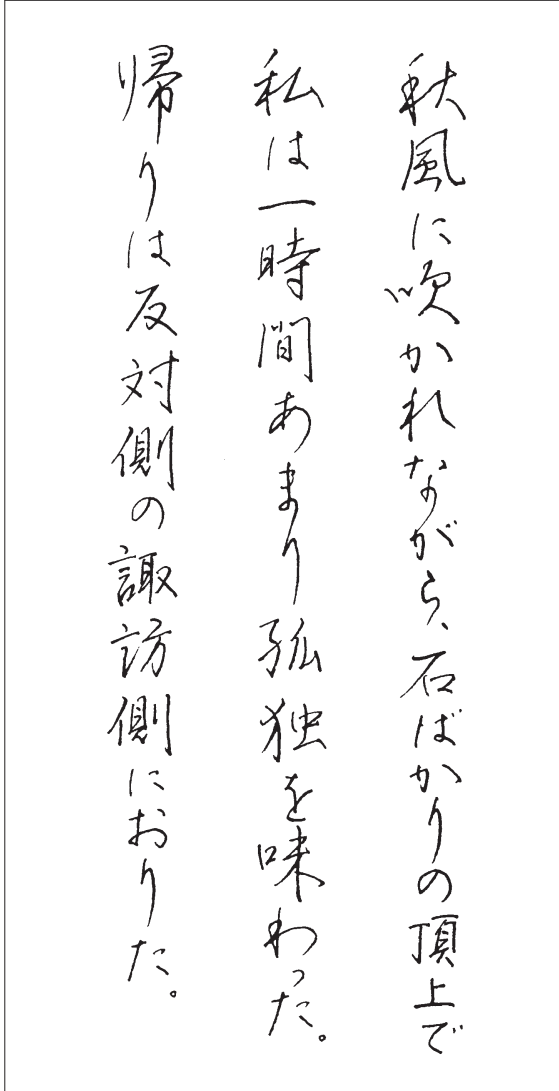 秋風に吹かれながら、石ばかりの頂上で
私は一時間あまり孤独を味わった。
帰りは反対側の諏訪側におりた。